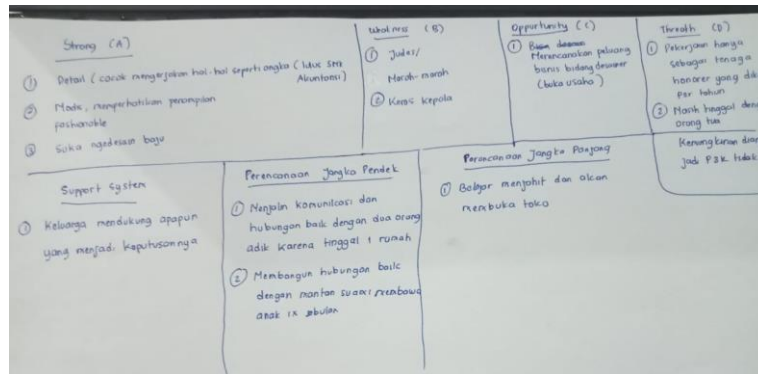 Strong (A)
① Detail ( cocok mengerjakan hal-hal seperti angka ( lulus SMA
Akuntansi)
② Modis, memperhatikan penampilan
fashonable
③ Suka ngedesain baju
(B)
① Judes/
Marah-marah
② Keras kepala
Opportunity (C)
① Merencanakan peluang
bisnis bidang desainer
(buka usaha)
Threath (D)
① Pekerjaan hanya
sebagai tenaga
honorer yang
per tahun
② Masih tinggal
orang tua
Kemungkinan
jadi P3K tidak
Support System
① Keluarga mendukung apapun
yang menjadi keputusannya
Perencanaan Jangka Pendek
① Menjalin komunikasi dan
hubungan baik dengan dua orang
adik karena tinggal 1 rumah
② Membangun hubungan baik
dengan mantan suami membawa
anak 1x sebulan
Perencanaan Jangka Panjang
① Belajar menjahit dan akan
membuka toko